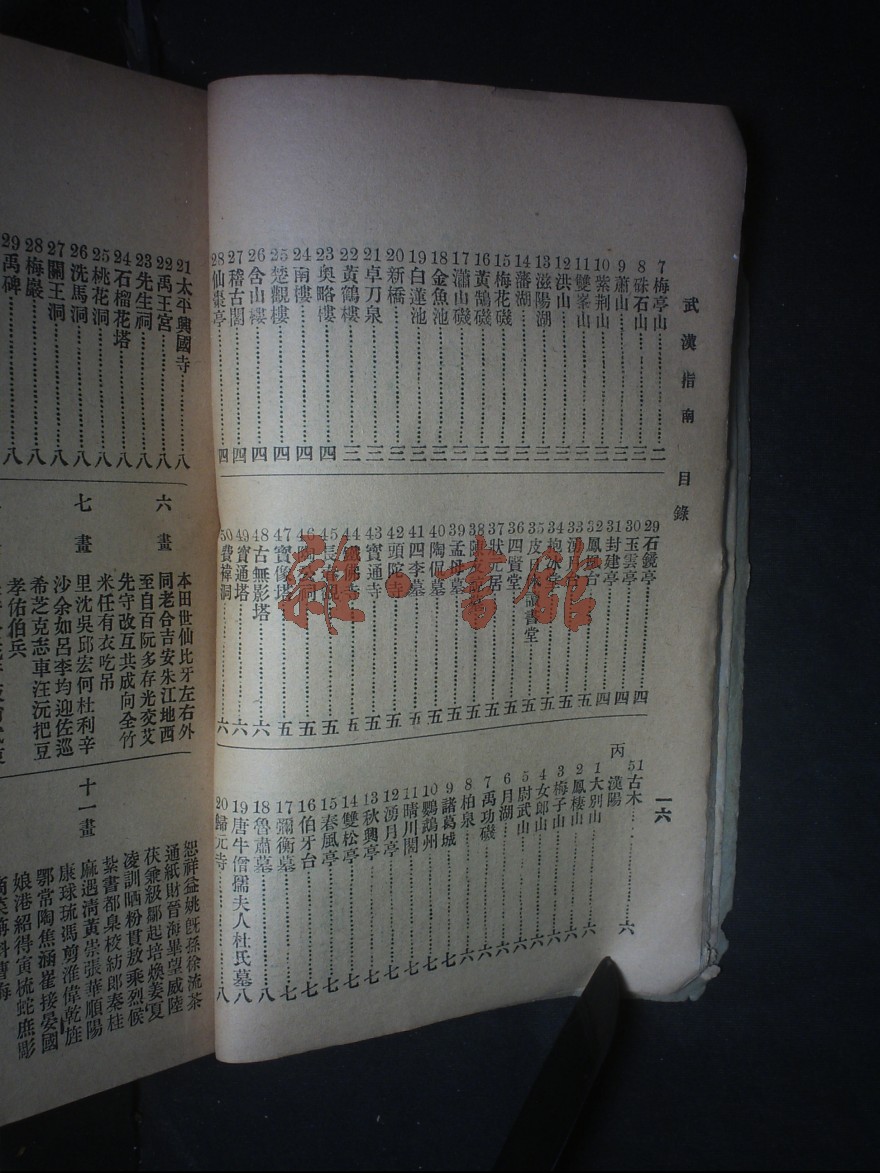 武漢指南 目錄
一六
7 梅亭山 二
8 硃石山 三
9 蕭山 三
10 紫荆山 三
11 雙峯山 三
12 洪山 三
13 滋陽湖 三
14 潘湖 三
15 梅花磯 三
16 黃鵠磯 三
17 瀟山磯 三
18 金魚池 三
19 白蓮池 三
20 新橋 三
21 卓刀泉 三
22 黃鶴樓 三
23 奥略樓 四
24 南樓 四
25 楚觀樓 四
26 含山樓 四
27 稽古閣 四
28 仙棗亭 四
29 石鏡亭 四
30 玉雲亭 四
31 封建亭 四
32 鳳凰台 五
33 湧月台 五
34 抱冰堂 五
35 皮 書堂 五
36 四賢堂 五
37 狀元居 五
38 墓 五
39 孟母墓 五
40 陶侃墓 五
41 四李墓 五
42 頭陀寺 五
43 寶通寺 五
44 鐵佛寺 五
45 長春觀 五
46 五
47 寶像塔 五
48 古無影塔 六
49 寶通塔 六
50 費禕洞 六
51 古木 六
丙 漢陽
1 大別山 六
2 鳳棲山 六
3 梅子山 六
4 女郎山 六
5 尉武山 六
6 月湖 六
7 禹功磯 六
8 柏泉 六
9 諸葛城 七
10 鸚鵡州 七
11 晴川閣 七
12 湧月亭 七
13 秋興亭 七
14 雙松亭 七
15 春風亭 七
16 伯牙台 七
17 彌衡墓 七
18 魯肅墓 八
19 唐牛僧孺夫人杜氏墓 八
20 歸元寺 八
21 太平興國寺 八
22 禹王宮 八
23 先生祠 八
24 石榴花塔 八
25 桃花洞 八
26 洗馬洞 八
27 關王洞 八
28 梅巖 八
29 禹碑 八
六畫
本田世仙比牙左右外
同老合吉安朱江地西
至自百阮多存光交艾
先守改互共成向全竹
米任有衣吃吊
七畫
里沈吳邱宏何杜利辛
沙余如呂李均迎佐巡
希芝克志車汪沅把豆
孝佑伯兵
恕祥益姚旣孫徐流茶
通紙財晉海畢望威陸
茯兼級鄒起培煥姜夏
凌訓晒粉貫放乘烈候
紮書都臬校紡郎秦桂
十一畫
麻過淸黃崇張華順陽
康球琉馮剪淮偉乾旌
鄂常陶焦涵崔接晏國
娘港紹得寅梳蛇庶彫
雜·書館